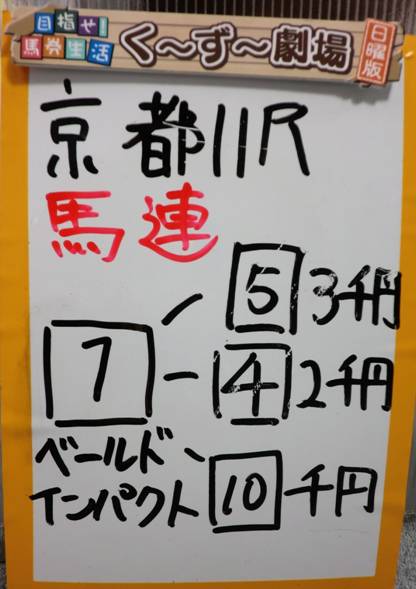 目指せ!
馬券生活
く~ず~劇場
日曜版
京都11R
馬連
5 3千円
7 - 4 2千円
ベールド
インパクト 10 千円